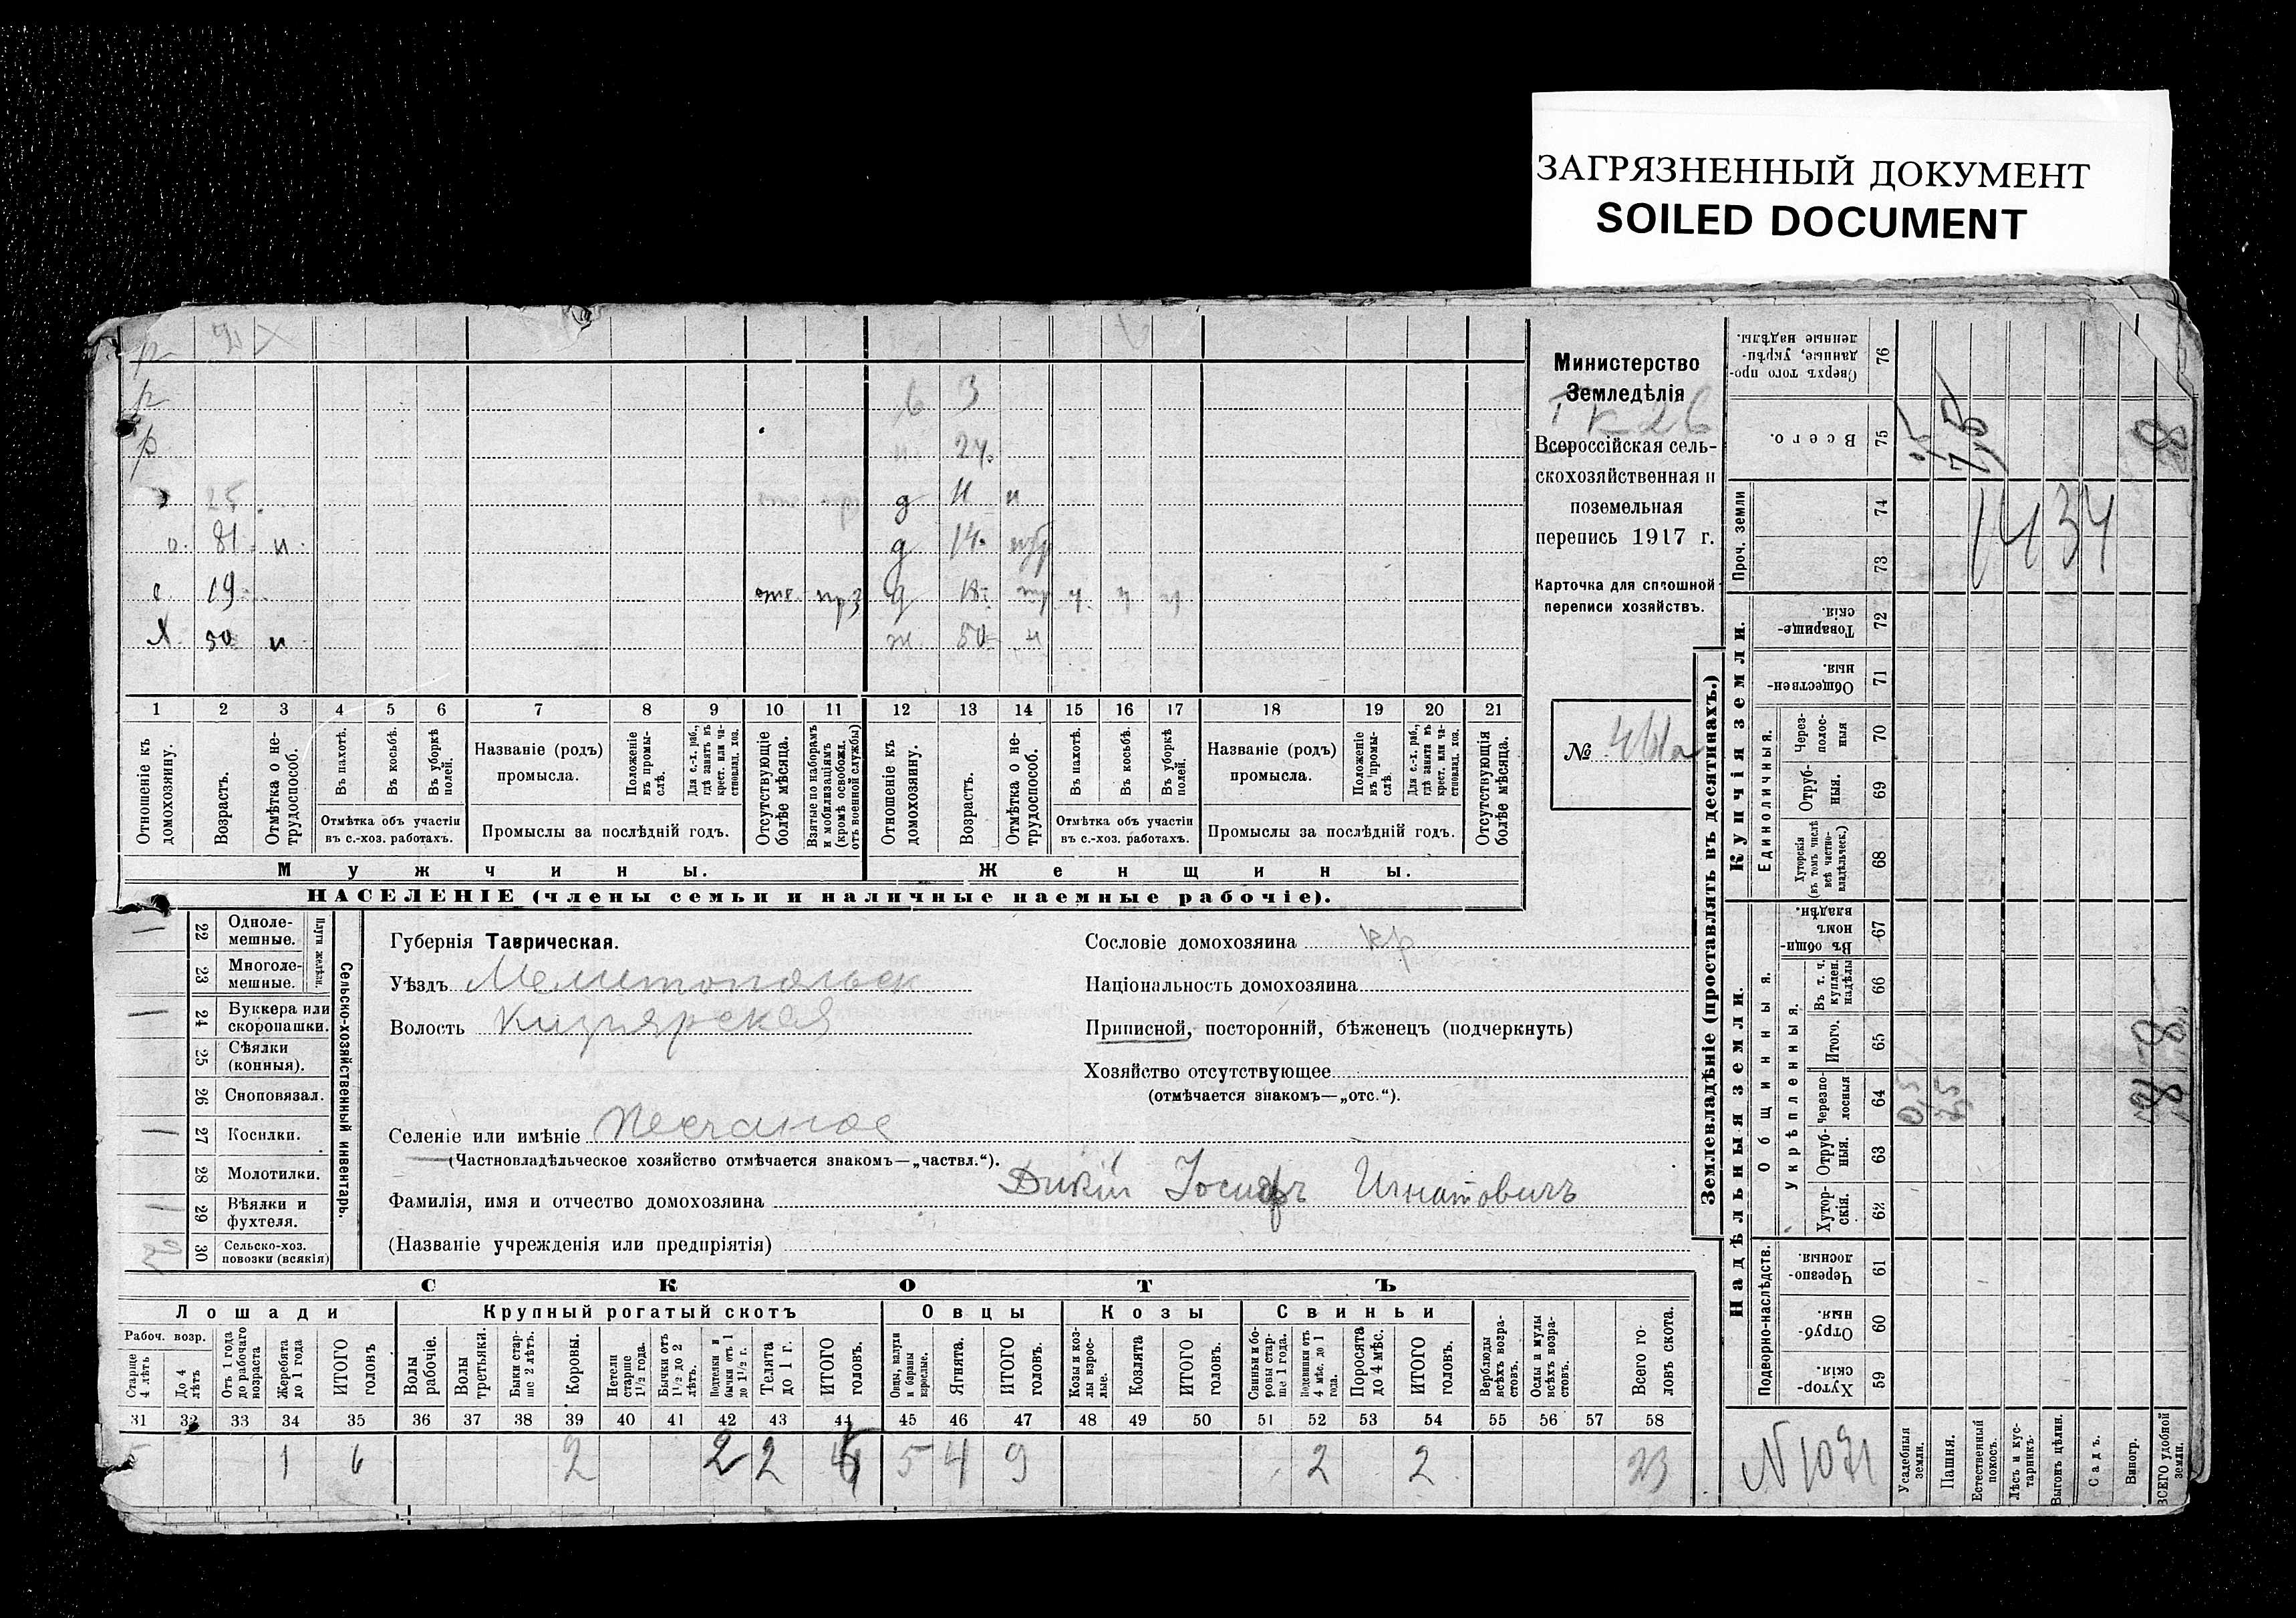 ЗАГРЯЗНЕННЫЙ ДОКУМЕНТ
SOILED DOCUMENT
р
р 3
р. 24.
25 д 11 н
о. 81. н. д 14.
с. 19 отс. д 18 ч ч ч
Х 50 н ж. 50 н
1 2 3 4 5 6 7 8 9 10 11 12 13 14 15 16 17 18 19 20 21
Отношеніе къ домохозяину.
Возрастъ.
Отмѣтка о нетрудоспособ.
Въ пахотѣ.
Въ косьбѣ.
Въ уборкѣ полей.
Отмѣтка объ участіи въ с.-хоз. работахъ.
Названіе (родъ) промысла.
Положеніе въ промыслѣ.
Для с.-х. раб., гдѣ занятъ въ крест. или частновлад. хоз.
Промыслы за послѣдній годъ.
Отсутствующіе болѣе мѣсяца.
Взятые по наборамъ и мобилизаціямъ (кромѣ освобожд. отъ военной службы)
Отношеніе къ домохозяину.
Возрастъ.
Отмѣтка о нетрудоспособ.
Въ пахотѣ.
Въ косьбѣ.
Въ уборкѣ полей.
Отмѣтка объ участіи въ с.-хоз. работахъ.
Названіе (родъ) промысла.
Положеніе въ промыслѣ.
Для с.-х. раб., гдѣ занята въ крест. или частновлад. хоз.
Промыслы за послѣдній годъ.
Отсутствующія болѣе мѣсяца.
Мужчины. Женщины.
НАСЕЛЕНІЕ (члены семьи и наличные наемные рабочіе).
Министерство
Земледѣлія
Всероссійская сель-
скохозяйственная и
поземельная
перепись 1917 г.
Карточка для сплошной
переписи хозяйствъ.
№
22 Однолемешные.
23 Многолемешные.
Плуги желѣзн.
24 Буккера или скоропашки.
25 Сѣялки (конныя).
26 Сноповязал.
27 Косилки.
28 Молотилки.
29 Вѣялки и фухтеля.
30 Сельско-хоз. повозки (всякія)
Сельско-хозяйственный инвентарь.
Губернія Таврическая.
Уѣздъ Мелитопольск
Волость Кизіярская
Селеніе или имѣніе Песчаное
(Частновладѣльческое хозяйство отмѣчается знакомъ—„частвл.“).
Фамилія, имя и отчество домохозяина Дикій Іосифъ Игнатовичъ
(Названіе учрежденія или предпріятія)
Сословіе домохозяина кр
Національность домохозяина
Приписной, посторонній, бѣженецъ (подчеркнуть)
Хозяйство отсутствующее
(отмѣчается знакомъ—„отс.“).
СКОТЪ
Лошади Крупный рогатый скотъ Овцы Козы Свиньи
Рабоч. возр.
Старше 4 лѣтъ
До 4 лѣтъ
Отъ 1 года до рабочаго возраста
Жеребята до 1 года
ИТОГО головъ
Волы рабочіе.
Волы третьяки.
Быки старше 2 лѣтъ.
Коровы.
Нетели старше 1½ года.
Бычки отъ 1½ до 2 лѣтъ.
Подтелки и бычки отъ 1 до 1½ г.
Телята до 1 г.
ИТОГО головъ.
Овцы, валухи и бараны взрослые.
Ягнята.
ИТОГО головъ.
Козы и козлы взрослые.
Козлята
ИТОГО головъ.
Свиньи и боровы старше 1 года.
Подсвинки отъ 4 мѣс. до 1 года.
Поросята до 4 мѣс.
ИТОГО головъ.
Верблюды всѣхъ возрастовъ.
Ослы и мулы всѣхъ возрастовъ.
Всего головъ скота.
31 32 33 34 35 36 37 38 39 40 41 42 43 44 45 46 47 48 49 50 51 52 53 54 55 56 57 58
5 1 6 2 2 2 5 4 9 2 2 23
Землевладѣніе (проставлять въ десятинахъ.)
Надѣльныя земли. Купчія земли.
Подворно-наслѣдств.
Общинныя.
Укрѣпленныя.
Единоличныя.
Проч. земли
59 Хуторскія.
60 Отрубныя.
61 Черезполосныя.
62 Хуторскія.
63 Отрубныя.
64 Черезполосныя
65 Итого.
66 Въ т. ч. куплен. надѣлы
67 Въ общинномъ владѣн.
68 Хуторскія (въ томъ числѣ всѣ частновладѣльческ.)
69 Отрубныя.
70 Черезполосныя
71 Общественныя.
72 Товарищескія.
73
74
75 Всего.
76 Сверхъ того проданные, укрѣпленные надѣлы.
1434
N 1091
Усадебныя земли.
Пашня.
Естественный покосъ.
Лѣсъ и кустарникъ.
Выгонъ цѣлин.
Садъ.
Виногр.
ВСЕГО удобной земли.